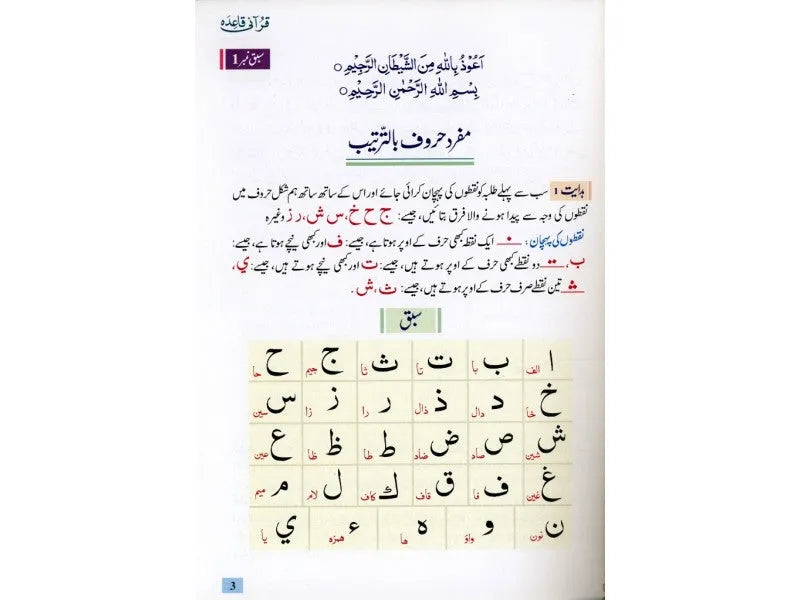 قرآنی قاعدہ
سبق نمبر 1
اَعُوْذُ بِاللّٰهِ مِنَ الشَّیْطَانِ الرَّجِیْمِ ○
بِسْمِ اللّٰهِ الرَّحْمٰنِ الرَّحِیْمِ ○
مفرد حروف بالترّتیب
ہدایت 1 سب سے پہلے طلبہ کو نقطوں کی پہچان کرائی جائے اور اس کے ساتھ ساتھ ہم شکل حروف میں
نقطوں کی وجہ سے پیدا ہونے والا فرق بتائیں، جیسے: ج ح خ، س ش، ر ز وغیرہ
نقطوں کی پہچان: ایک نقطہ کبھی حرف کے اوپر ہوتا ہے، جیسے: ف اور کبھی نیچے ہوتا ہے، جیسے:
ب، دو نقطے کبھی حرف کے اوپر ہوتے ہیں، جیسے: ت اور کبھی نیچے ہوتے ہیں، جیسے: ي،
تین نقطے صرف حرف کے اوپر ہوتے ہیں، جیسے: ث، ش۔
سبق
ا الف ب با ت تا ث ثا ج جیم ح حا
خ خا د دال ذ ذال ر را ز زا س سین
ش شین ص صاد ض ضاد ط طا ظ ظا ع عین
غ غین ف فا ق قاف ك کاف ل لام م میم
ن نون و واؤ ہ ھا ء ھمزہ ي یا
3